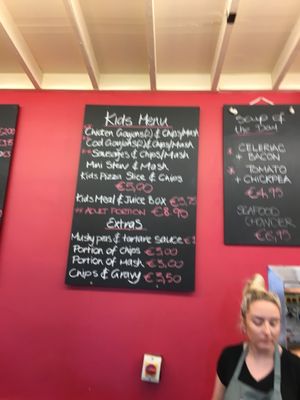 Kids Menu
* Chicken Goujons(2) & Chips/Mash
** Cod Goujons(2) & Chips/Mash
** Sausages & Chips/Mash
Mini Stew & Mash
Kids Pizza Slice & Chips
€5,00
Kids Meal & Juice Box €5,75
** ADULT PORTION €8.90
Extras
Mushy peas & tartare sauce €1
Portion of chips €3,00
Portion of Mash €3,00
Chips & Gravy €3,50
Soup of
the Day
* CELERIAC
+ BACON
* TOMATO
+ CHICKPEA
€4,95
SEAFOOD
CHOWDER
€6,95